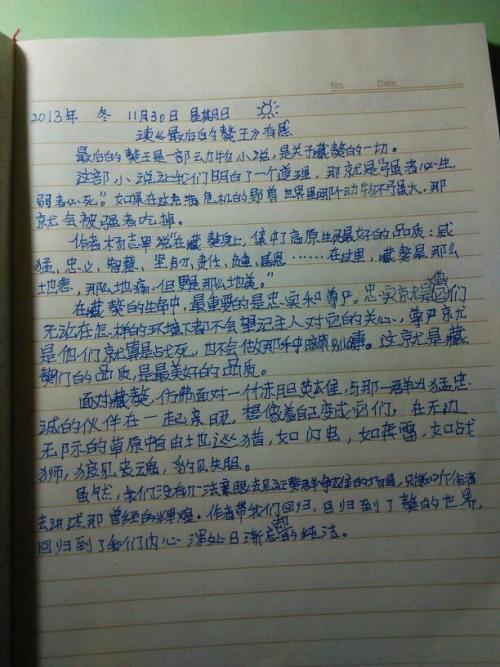 No. Date.
2013年 冬 11月30日 星期日
读《最后的獒王》有感
最后的獒王是一部动物小说,是关于藏獒的一切。
这部小说让我们明白了一个道理,那就是"强者必生,
弱者必死。"如果在这充满危机的野兽世界里哪个动物不强大,那
就会被强者吃掉。
作者杨志军说"在藏獒身上,集中了高原生灵最好的品质:威
猛、忠义、智慧、坚韧、责任、尊严、感恩……在这里,藏獒是那么
地悲,那么地痛,但更是那么地美。"
在藏獒的生命中,最重要的是忠实和尊严。忠实就是它们
无论在怎样的环境下都不会忘记主人对它的关心,尊严就
是他们就算是战死,也不会做那种。这就是藏
獒们的品质,是最美好的品质。
面对藏獒,仿佛面对一代赤胆英雄,与那一群凶猛忠
诚的伙伴在一起亲昵,想像着自己变成它们,在无边
无际的草原中自由地巡猎,如闪电,如奔雷,如战
狮,狼见丧魂,豹见失胆。
虽然,我们没有办法亲眼去见证獒群争雄的场面,只能听作者
去讲述那曾经的辉煌。作者带我们回归,回归到了獒的世界,
回归到了我们内心深处日渐的纯洁。